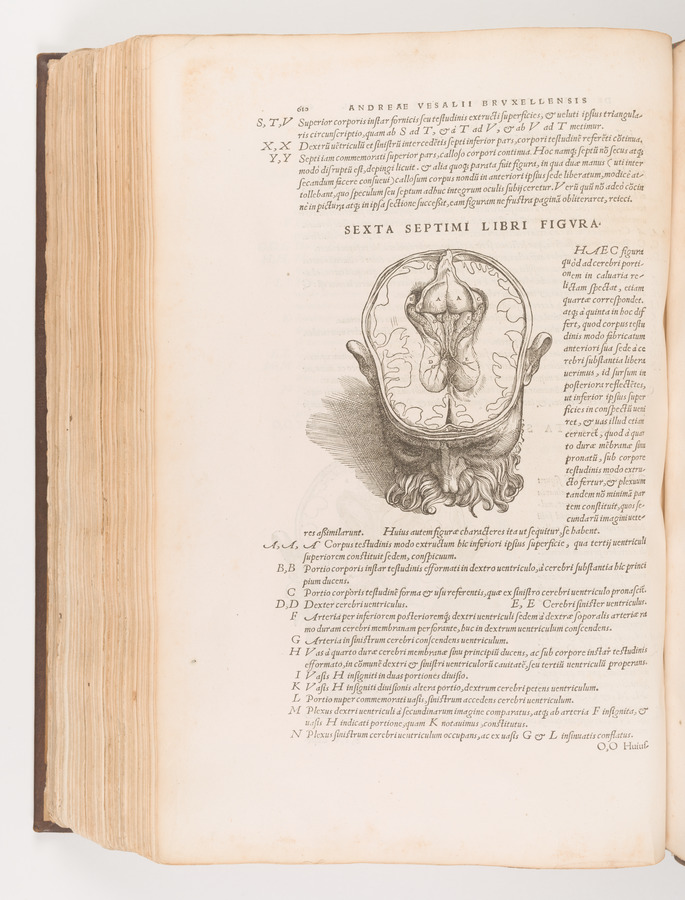 610 ANDREAE VESALII BRVXELLENSIS
S, T, V Superior corporis instar fornicis seu testudinis extructi superficies, & ueluti ipsius triangula-
ris circunscriptio, quam ab S ad T, & à T ad V, & ab V ad T metimur.
X, X Dextrũ uẽtriculũ et sinistrũ intercedẽtis septi inferior pars, corpori testudinẽ referẽti cõtinua.
Y, Y Septi iam commemorati superior pars, calloso corpori continua. Hoc namq; septũ nõ secus atq;
modò disruptũ est, depingi licuit. & alia quoq; parata fuit figura, in qua duæ manus (uti inter
secandum facere consueui) callosum corpus nondũ in anteriori ipsius sede liberatum, modicè at-
tollebant, quo speculum seu septum adhuc integrum oculis subijceretur. Verũ quũ nõ adeò cõcin
nè in pictura atq; in ipsa sectione successit, eam figuram ne frustra paginã obliteraret, reieci.
SEXTA SEPTIMI LIBRI FIGVRA.
HAEC figura
quòd ad cerebri porti-
onem in caluaria re-
lictam spectat, etiam
quartæ correspondet.
atq; à quinta in hoc dif
fert, quod corpus testu
dinis modo fabricatum
anteriori sua sede à ce
rebri substantia libera
uerimus, id sursum in
posteriora reflectẽtes,
ut inferior ipsius super
ficies in conspectũ ueni
ret, & uas illud etiam
cerneret, quod à quar
to duræ mẽbranæ sinu
pronatũ, sub corpore
testudinis modo extru-
cto fertur, & plexuum
tandem nõ minimã par
tem constituit, quos se-
cundarũ imagini uete-
res aßimilarunt. Huius autem figuræ characteres ita ut sequitur, se habent.
A, A, A Corpus testudinis modo extructum hic inferiori ipsius superficie, qua tertij uentriculi
superiorem constituit sedem, conspicuum.
B, B Portio corporis instar testudinis efformati in dextro uentriculo, à cerebri substantia hic princi
pium ducens.
C Portio corporis testudinẽ forma & usu referentis, quæ ex sinistro cerebri uentriculo pronascit.
D, D Dexter cerebri uentriculus. E, E Cerebri sinister uentriculus.
F Arteria per inferiorem posterioremq́; dextri uentriculi sedem à dextræ soporalis arteriæ ra
mo duram cerebri membranam perforante, huc in dextrum uentriculum conscendens.
G Arteria in sinistrum cerebri conscendens uentriculum.
H Vas à quarto duræ cerebri membranæ sinu principiũ ducens, ac sub corpore instar testudinis
efformato, in cõmunẽ dextri & sinistri uentriculorũ cauitatẽ, seu tertiũ uentriculũ properans.
I Vasis H insigniti in duas portiones diuisio.
K Vasis H insigniti diuisionis altera portio, dextrum cerebri petens uentriculum.
L Portio nuper commemorati uasis, sinistrum accedens cerebri uentriculum.
M Plexus dextri uentriculi à secundinarum imagine comparatus, atq; ab arteria F insignita, &
uasis H indicati portione, quam K notauimus, constitutus.
N Plexus sinistrum cerebri uentriculum occupans, ac ex uasis G & L insinuatis conflatus.
O, O Huius